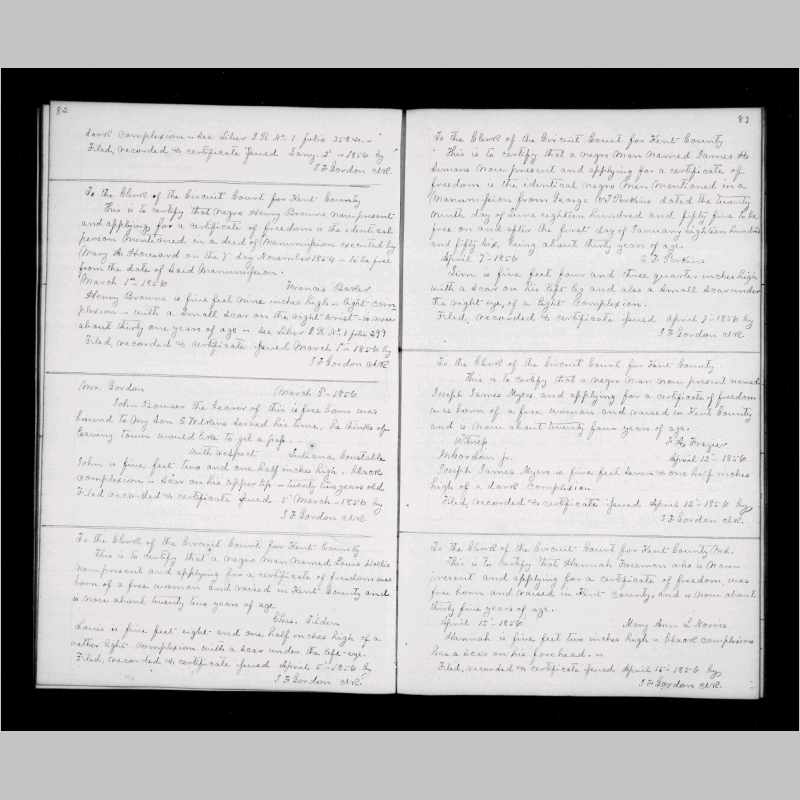 82
dark complexion - See Liber J.R. No. 1 folio 258 &c -
Filed, recorded & certificate Issued Jany. 2d - 1856 by
J F Gordon clk.
To the Clerk of the Circuit Court for Kent County
This is to certify that negro Henry Browne now present
and applying for a certificate of freedom is the identical
person mentioned in a deed of Manumission executed by
Mary A. on the 7th day November 1854 - to be free
from the date of said Manumission.
March 1st 1856 Francis Baker
Henry Browne is five feet nine inches high - light com-
plexion - with a small scar on the right wrist - is now
about thirty one years of age - see Liber J.R. No. 1 folio 299
Filed, recorded & certificate issued March 1st - 1856 by
J F Gordon clk
Mr. Gordon March 5th - 1856
John the bearer of this is free born was
bound to my son and served his time, he thinks of
leaving town would like to get a pass.
With respect Juliana Constable
John is five feet two and one half inches high - black
complexion - scar on his upper lip - twenty two years old
Filed recorded & certificate issued 5th March - 1856 by
J F Gordon clk
To the Clerk of the Circuit Court for Kent County
This is to certify that a negro man named Louis
now present and applying for a certificate of freedom was
born of a free woman and raised in Kent County and
is now about twenty two years of age
Chas. Tilden
Louis is five feet eight and one half inches high of a
rather light complexion with a scar under the left eye.
Filed, recorded & certificate issued April 5th - 1856 by
J F Gordon clk.
83
To the Clerk of the Circuit Court for Kent County
This is to certify that a negro man named James H.
now present and applying for a certificate of
freedom is the identical negro man mentioned in a
Manumission from George Perkins dated the twenty
ninth day of June eighteen hundred and fifty five to be
free on and after the first day of January eighteen hundred
and fifty six, being about thirty years of age.
April 7th - 1856 Perkins
is five feet four and three quarter inches high
with a scar on his left by and also a small scar under
the right eye, of a light complexion.
Filed, recorded & certificate issued April 7 - 1856 by
J F Gordon clk.
To the Clerk of the Circuit Court for Kent County
This is to certify that a negro man now present named
Joseph James Myers and applying for a certificate of freedom
was born of a free woman and raised in Kent County
and is now about twenty four years of age.
Frazier
April 12th - 1856
Joseph James Myers is five feet seven & one half inches
high of a dark complexion.
Filed, recorded & certificate issued April 12th - 1856 by
J F Gordon clk.
To the Clerk of the Circuit Court for Kent County Md.
This is to certify that Hannah Freeman who is now
present and applying for a certificate of freedom, was
free born and raised in Kent County, and is now about
thirty five years of age.
April 15th 1856 Mary Ann L Norris
Hannah is five feet two inches high - black complexion
has a scar on his forehead. -
Filed, recorded & certificate issued April 15th - 1856 by
J F Gordon clk.